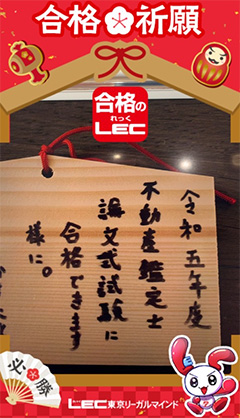 合格祈願
合格の
れっく
LEC
令和五年度
不動産鑑定士
論文式試験に
合格できます
様に。
必勝
LEC東京リーガルマインド